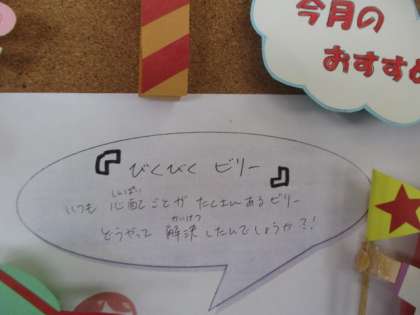 今月の
おすすめ
『びくびく ビリー』
しんぱい
いつも 心配ごとが たくさんあるビリー
かいけつ
どうやって 解決したんでしょうか?!